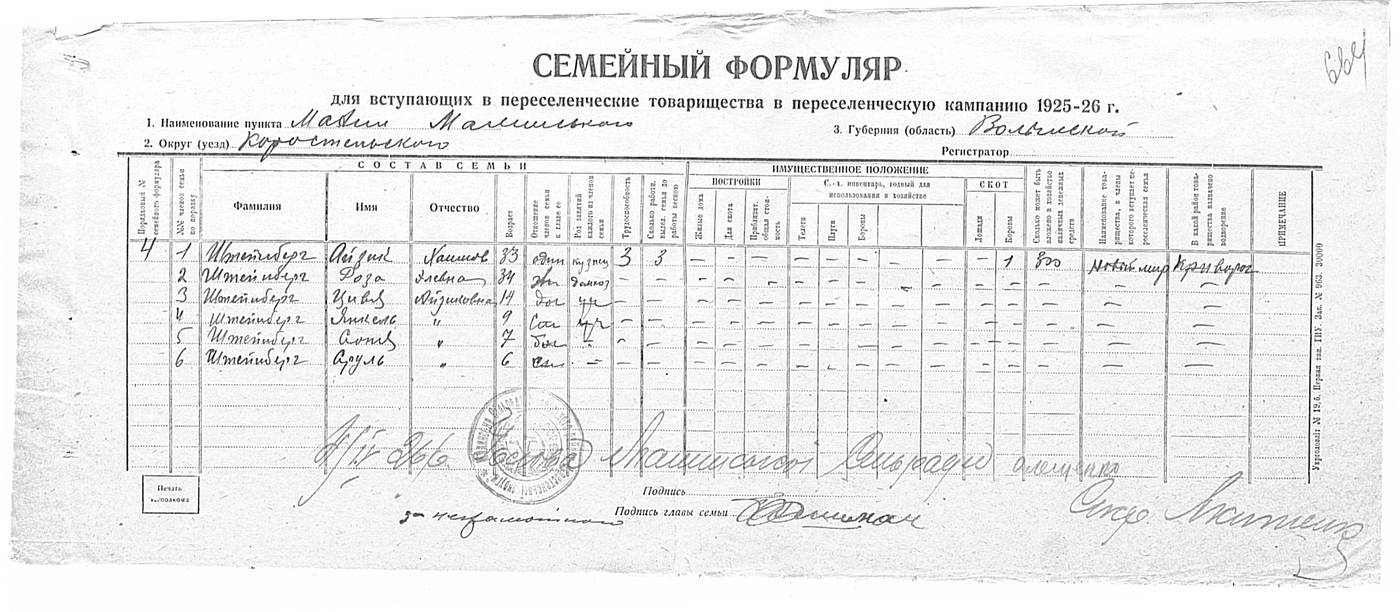 664
СЕМЕЙНЫЙ ФОРМУЛЯР
для вступающих в переселенческие товарищества в переселенческую кампанию 1925-26 г.
1. Наименование пункта
3. Губерния (область) Волынской
2. Округ (уезд) Коростенського
Регистратор
Порядковый № семейного формуляра
СОСТАВ СЕМЬИ
ИМУЩЕСТВЕННОЕ ПОЛОЖЕНИЕ
№№ членов семьи по порядку
Фамилия
Имя
Отчество
Возраст
Отношение членов семьи к главе ее
Род занятий каждого из членов семьи
Трудоспособность
Сколько работн. выдел. семья до работы весною
ПОСТРОЙКИ
Жилые дома
Для скота
Приблизит. общая стоимость
С.-х. инвентарь, годный для использования в хозяйстве
Телеги
Плуги
Бороны
СКОТ
Лошади
Коровы
Сколько может быть вложено в хозяйство наличных денежных средств
Наименование товарищества, в члены которого вступает переселенческая семья
В какой район товарищества назначено водворение
ПРИМЕЧАНИЕ
4 1 Штейнберг Айзик Хаимов 33 один кузнец 3 3 — — — — — — — — 1 300 Новый мир Криворог
2 Штейнберг Роза 34 домхоз — — — — — — — — — — — — —
3 Штейнберг Цивя Айзиковна 14 доч уч — — — — — — — — — — — — — —
4 Штейнберг Янкель " 9 сын уч — — — — — — — — — — — — — —
5 Штейнберг " 7 доч — — — — — — — — — — — — — — —
6 Штейнберг Сруль " 6 сын — — — — — — — — — — — — — — —
Укрголовліт № 19,6. Первая тип. ГПУ. Зак. № 963. 30000
Голова Сильради
Печать исполкома
Подпись
за неграмотного
Подпись главы семьи
Секр.